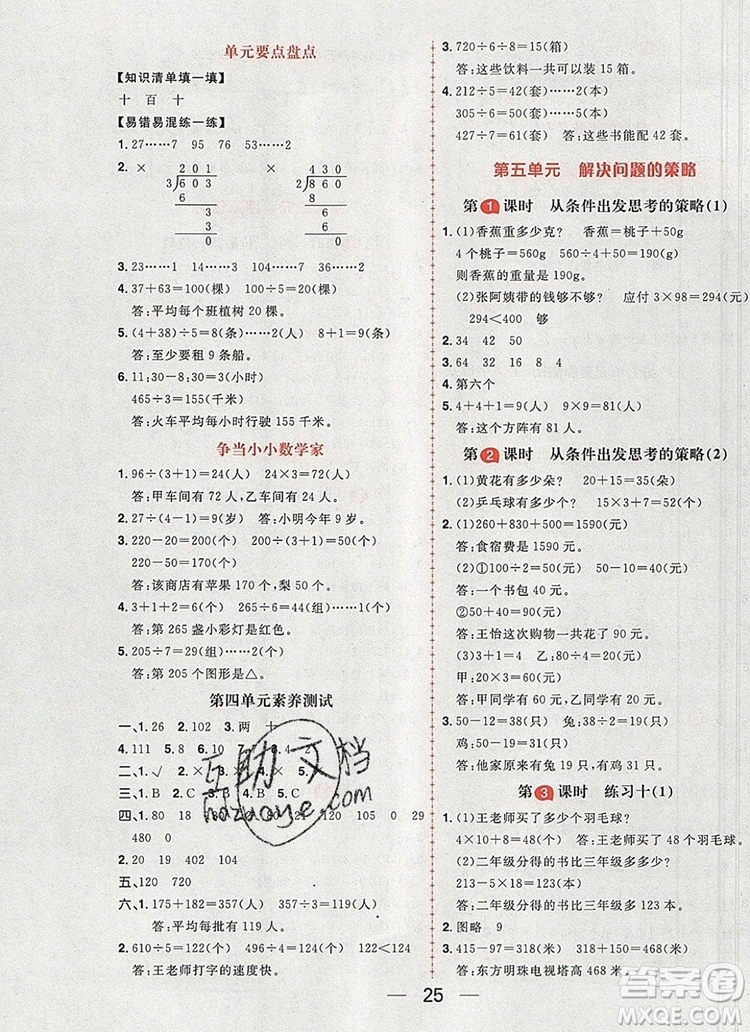 单元要点盘点
【知识清单填一填】
十 百 十
【易错易混练一练】
1. 27……7 95 76 53……2
2. × 201 3)603 6 3 3 0 × 430 2)860 8 6 6 0
3. 23……1 14 120……3 244……1
4. 37+63=100(棵) 100÷5=20(棵)
答:平均每个班植树 20 棵。
5. (4+38)÷5=8(条)……2(人) 8+1=9(条)
答:至少要租 9 条船。
6. 11:30-8:30=3(小时)
465÷3=155(千米)
答:火车平均每小时行驶 155 千米。
争当小小数学家
1. 96÷(3+1)=24(人) 24×3=72(人)
答:甲车间有 72 人,乙车间有 24 人。
2. 27÷(4-1)=9(岁) 答:小明今年 9 岁。
3. 220-20=200(个) 200÷(3+1)=50(个)
220-50=170(个)
答:该商店有苹果 170 个,梨 50 个。
4. 3+1+2=6(个) 265÷6=44(组)……1(个)
答:第 265 盏小彩灯是红色。
5. 205÷7=29(组)……2(个)
答:第 205 个图形是△。
第四单元素养测试
一、1. 26 2. 102 3. 两 十
4. 111 5. 8 6. 4 2
二、1. √
三、1. B 2. C 3. B
四、1. 105 0 29
480 0
2. 20 19 402 4
五、120 720
六、1. 175+182=357(个) 357÷3=119(人)
答:平均每批有 119 人。
2. 610÷5=122(个) 372÷3=124(个) 122<124
答:王老师打字的速度快。
3. 720÷6÷8=15(箱)
答:这些饮料一共可以装 15 箱。
4. 212÷5=42(套)……2(本)
305÷6=50(套)……5(本)
637÷7=91(套) 答:这些书能配 42 套。
第五单元 解决问题的策略
第1课时 从条件出发思考的策略(1)
1. (1)香蕉重多少克? 香蕉=桃子+50g
4 个桃子=560g 560÷4+50=190(g)
则香蕉的重量是 190g。
(2)张阿姨带的钱够不够? 应付 3×98=294(元)
294<400 够
2. 34 42 50
3. 64 32 16 8 4
4. 第六个
5. 4+4+1=9(人) 9×9=81(人)
答:这个方阵有 81 人。
第2课时 从条件出发思考的策略(2)
1. (1)黄花有多少朵? 20+15=35(朵)
(2)乒乓球有多少个? 15×3+12=57(个)
2. (1)260+830+500=1590(元)
答:食宿费是 1590 元。
(2)①100-60=40(元)
答:一个书包 40 元。
②50+40=90(元)
答:王怡这次购物一共花了 90 元。
(3)3+1=4 乙:80÷4=20(元)
甲:20×3=60(元)
答:甲同学有 60 元,乙同学有 20 元。
3. 50-12=38(只) 兔:38÷2=19(只)
鸡:19+12=31(只)
答:他家原来有鸡 31 只,兔 19 只。
第3课时 练习十(1)
1. (1)王老师买了多少个羽毛球?
4×10+8=48(个) 答:王老师买了 48 个羽毛球。
(2)二年级分得的书比三年级多多少?
213-5×15=138(本)
答:二年级分得的书比三年级多 138 本。
2. 图略 9
3. 415-97=318(米) 318+150=468(米)
答:东方明珠电视塔高 468 米。
互助文档
hdzuoye.com
答案圈
MXQE.COM
25